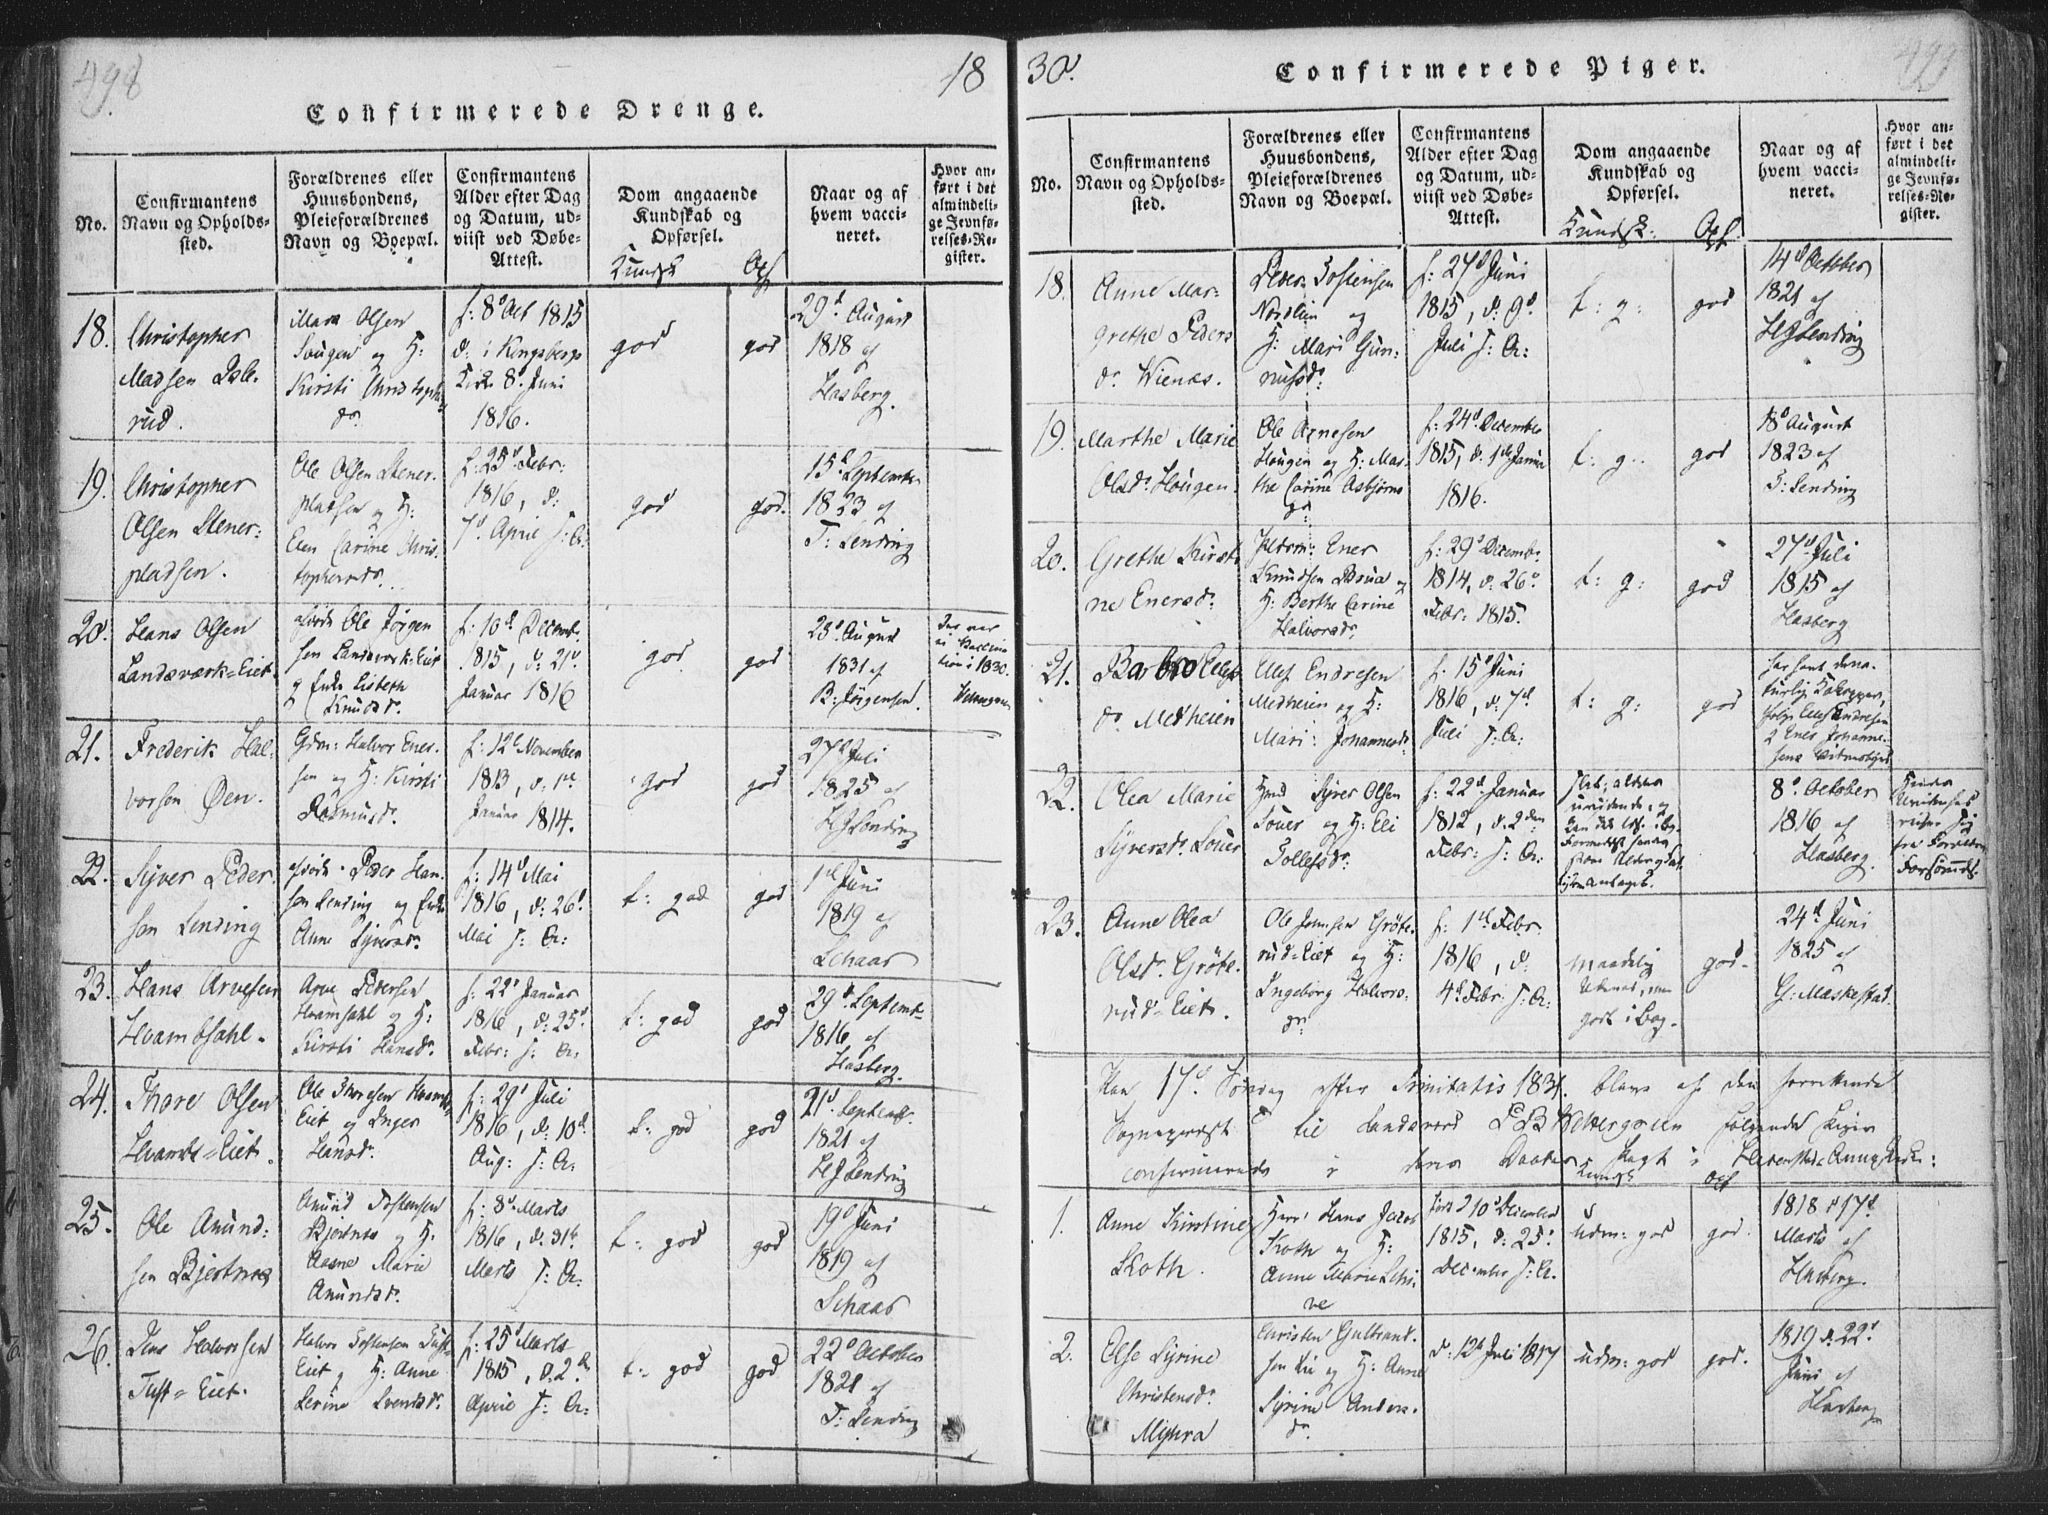 498.
18
Confirmerede Drenge.
No.
Confirmantens
Navn og Opholds-
sted.
Forældrenes eller
Huusbondens,
Pleieforældrenes
Navn og Boepæl.
Confirmantens
Alder efter Dag
og Datum, ud-
viist ved Døbe-
Attest.
Dom angaaende
Kundskab og
Opførsel.
Kundsk
Opf
Naar og af
hvem vacci-
neret.
Hvor an-
ført i det
almindeli-
ge Jevnfø-
relses-Re-
gister.
18.
Christopher
Madsen
rud.
Mads Olsen
Hougen og H:
Kirsti Christoph
dr
f: 8de Oct 1815
d: i Kongsbergs
Kirke 8de Juni
1816.
god
god
29d August
1818 af
Hasberg.
19.
Christopher
Olsen Stener-
pladsen.
Ole Olsen Stener-
pladsen og H:
Elen Carine Chris-
tophersdr.
f: 25d Febr:
1816, d:
7d April s: A:
god
god.
15d Septembr
1823 af
T: Lending
20.
Hans Olsen
Landsværk-Eiet
afdøde Ole Jörgen
sen Landsværk-Eiet
og Enke Lisbeth
Knudsdr.
f: 10d Decemb.
1815, d: 21d
Januar 1816
god
god
23d August
1831 af
B: Jörgensen.
Der var
ei Vaccina
tion i 1830.
21.
Frederik Hal-
vorsen Øen.
Gdm: Halvor Ener-
sen og H: Kirsti
Rasmusdr.
f: 12t November
1813, d. 1ste
Januar 1814.
god
god
27d Juli
1825 af
H J Lending
22.
Syver Peder-
sen Lending
afdöde Peder Han-
sen Lending og Enke
Anne Syversdr.
f: 14d Mai
1816, d: 26d
Mai s: A:
t: god
god
1ste Juni
1819 af
Schaar
23.
Hans Arvesen
Hvambsahl.
Arve Pedersen
Hvamsahl og H:
Kirsti Hansdr.
f: 22d Januar
1816, d: 25d
Febr: s: A:
t: god
god
29d Septemb
1816 af
Hasberg.
24.
Thore Olsen
Hvambs-Eiet.
Ole Thoresen Hvambs
Eiet og Inger
Hansdr.
f: 29d Juli
1816, d: 10d
Aug: s: A:
t: god
god
21d Septembr
1821 af
H J Lending
25.
Ole Amund-
sen Bjertnæs
Amund Tostensen
Bjertnæs og H:
Aasne Marie
Amundsdr.
f: 8d Marts
1816, d. 31te
Marts s: A:
t: god
god
19d Juni
1819 af
Schaar
26.
Jens Halvorsen
Tuft-Eiet.
Halvor Tostensen Tuft-
Eiet og H: Anne
Serine Svendsdr.
f: 25d Marts
1815, d. 2den
April s: A:
t: god
god
22d October
1821 af
T: Lending
30.
499
Confirmerede Piger.
No.
Confirmantens
Navn og Opholds-
sted.
Forældrenes eller
Huusbondens,
Pleieforældrenes
Navn og Boepæl.
Confirmantens
Alder efter Dag
og Datum, ud-
viist ved Døbe-
Attest.
Dom angaaende
Kundskab og
Opførsel.
Kundsk:
Opf:
Naar og af
hvem vacci-
neret.
Hvor an-
ført i det
almindeli-
ge Jevnfø-
relses-Re-
gister.
18.
Anne Mar-
grethe Peders
dr. Wienæs.
Peder Tostensen
og
H: Mari Gun-
f: 27d Juni
1815, d: 9d
Juli s: A:
t: g:
god
14d October
1821 af
H J Lending
19.
Marthe Marie
Olsdr. Hougen.
Ole Arnesen
Hougen og H: Mar-
the Carine Asbjörns
dr
f: 24d Decembr
1815, d. 1ste Januar
1816.
t: g:
god
18d August
1823 af
T: Lending
20.
Grethe Kirsti-
ne Enersdr.
Ener
Knudsen Brua og
H: Berthe Carine
Halvorsdr.
f: 29d Decembr
1814, d. 26d
Febr: 1815.
t: g:
god
27d Juli
1815 af
Hasberg
21.
Barbro Ellefs
dr. Medheien
Ellef Endresen
Medheien og H:
Mari Johannesdr
f. 15d Juni
1816, d. 7d
Juli s: A:
t: g:
god
har havt de na-
turlige Kokopper,
ifølge Ellef Endresen
og Ener Johanne-
sens Vidnesbyrd
22.
Olea Marie
Syversdr. Louer
Hmd Syver Olsen
Louer og H: Eli
Tollefsdr.
f: 22d Januar
1812, d. 2den
Febr: s: A:
8d October
1816 af
Hasberg.
Hendes
Uvidenhed
reiser sig
fra Forældres
Forsömmelse.
23.
Anne Olea
Olsdr. Gröte-
rud-Eiet.
Ole Johnsen Gröte-
rud-Eiet og H:
Ingeborg Halvors-
dr.
f. 1ste Febr.
1816, d.
4d Febr. s: A:
maadelig
Udenad, men
godt i Bog.
god.
24d Juni
1825 af
G: Maskestad.
Paa 17d Søndag efter Trinitatis 1831. bleve af den forrettende
Sogneprest til Sandsverd følgende Piger
confirmerede i
Kundsk
Opf
1.
Anne Kirstine
Koth.
Herr Hans Jacob
Koth og H:
Anne Marie Schi-
ve
født 10d December
1815, d: 25d
December s: A.
udm: god
god.
1818 d 17d
Marts af
Hasberg.
2.
Else Syrine
Christensdr.
Myhra
Christen Gulbrand-
sen Lie og H: Anne
Syrine Anders-
dr.
d: 12d Juli 1817
udm: god
god.
1819 d. 22d
Juni af
Hasberg